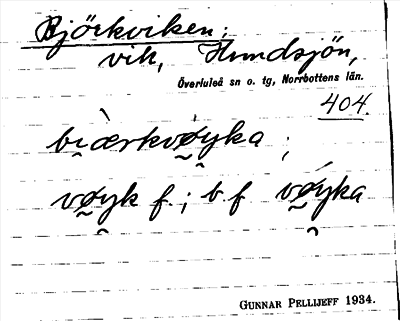 Björkviken;
vik, Hundsjön,
Överluleå sn o. tg, Norrbottens län.
404.
bi̯æ̀rkvø̯yka ;
vø̯yk f.; b. f vǿ̯yka
GUNNAR PELLIJEFF 1934.